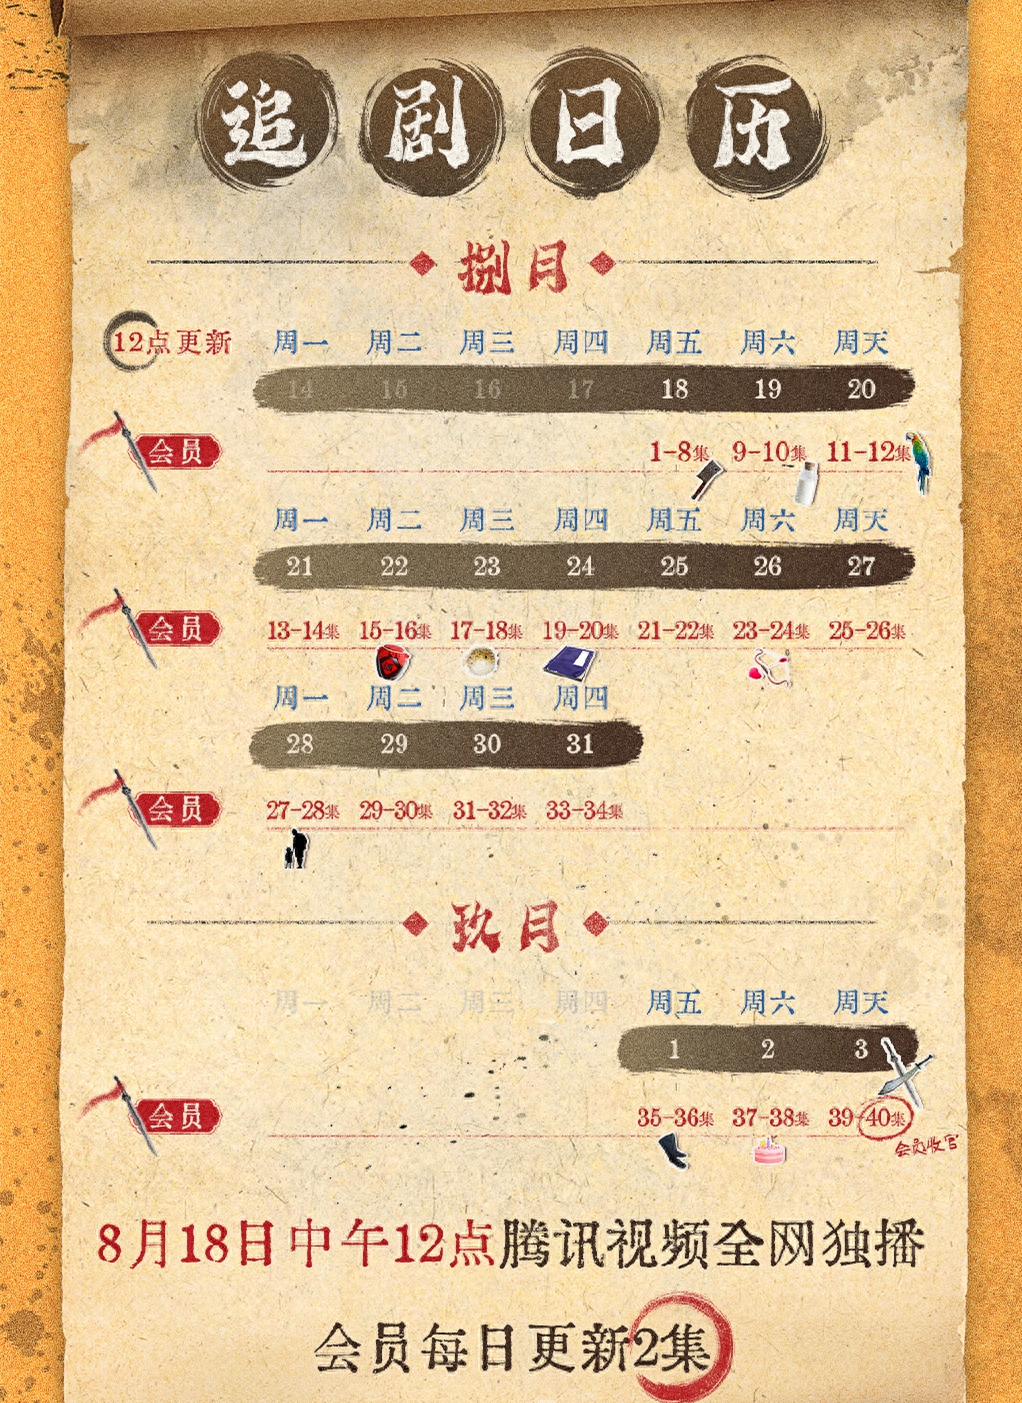 追剧日历
捌月
12点更新 周一 周二 周三 周四 周五 周六 周天
14 15 16 17 18 19 20
会员 1-8集 9-10集 11-12集
周一 周二 周三 周四 周五 周六 周天
21 22 23 24 25 26 27
会员 13-14集 15-16集 17-18集 19-20集 21-22集 23-24集 25-26集
周一 周二 周三 周四
28 29 30 31
会员 27-28集 29-30集 31-32集 33-34集
玖月
周一 周二 周三 周四 周五 周六 周天
1 2 3
会员 35-36集 37-38集 39-40集
会员收官
8月18日中午12点腾讯视频全网独播
会员每日更新2集